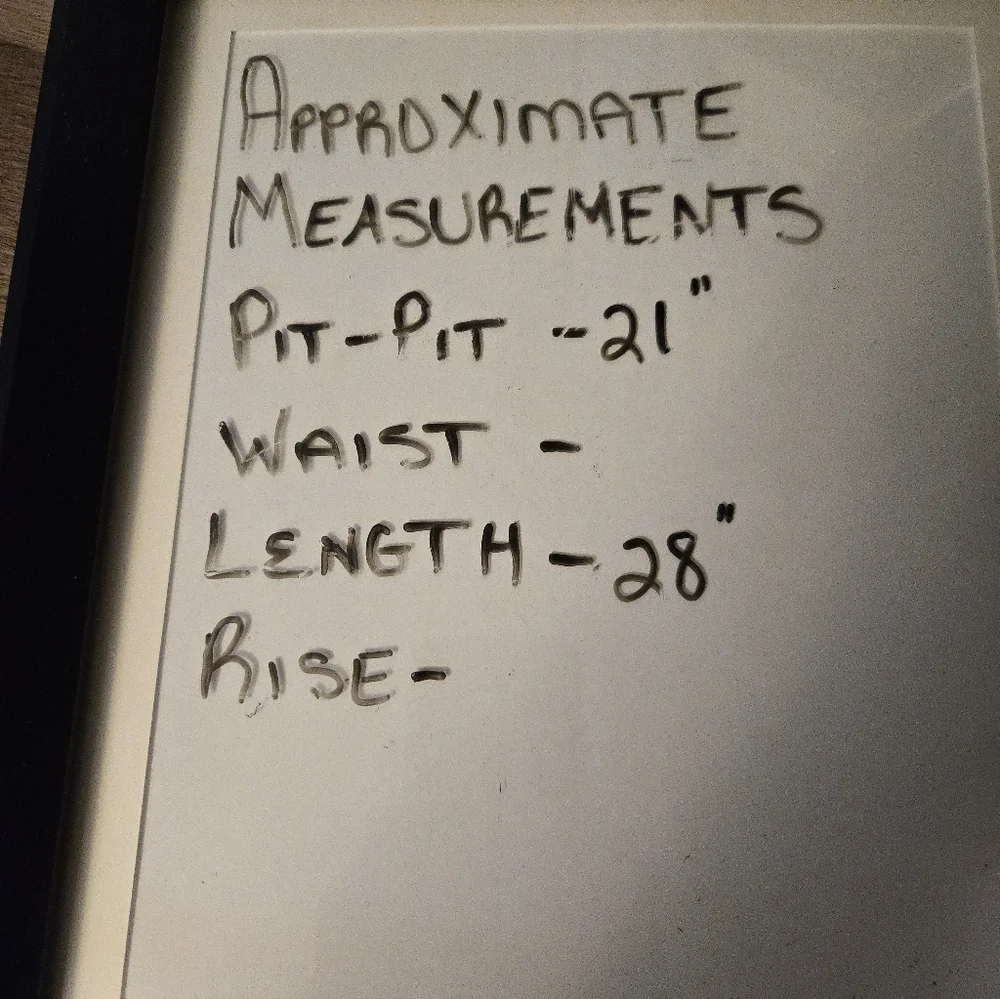 APPROXIMATE
MEASUREMENTS
PIT-PIT --21"
WAIST -
LENGTH - 28"
RISE-